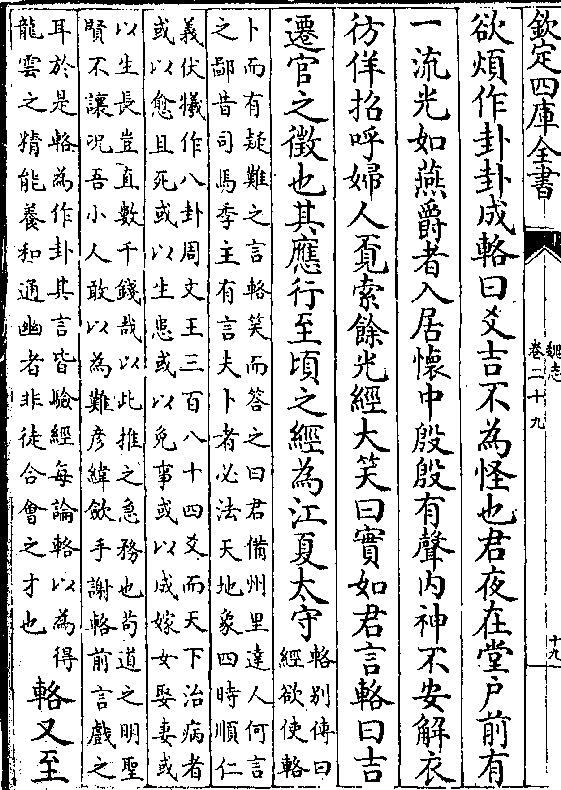 欽定四庫全書
魏志
卷二十九
十九
欲煩作卦卦成輅曰爻吉不為怪也君夜在堂户前有
一流光如燕爵者入居懷中殷殷有聲内神不安解衣
彷徉招呼婦人覔索餘光經大笑曰實如君言輅曰吉
遷官之徵也其應行至頃之經為江夏太守
輅别傳曰
經欲使輅
卜而有疑難之言輅笑而答之曰君備州里達人何言
之鄙昔司馬季主有言夫卜者必法天地象四時順仁
義伏犧作八卦周文王三百八十四爻而天下治病者
或以愈且死或以生患或以免事或以成嫁女娶妻或
以生長豈直數千錢哉以此推之急務也苟道之明聖
賢不讓况吾小人敢以為難彦緯斂手謝輅前言戲之
耳於是輅為作卦其言皆驗經每論輅以為得
龍雲之精能養和通幽者非徒合會之才也
輅又至